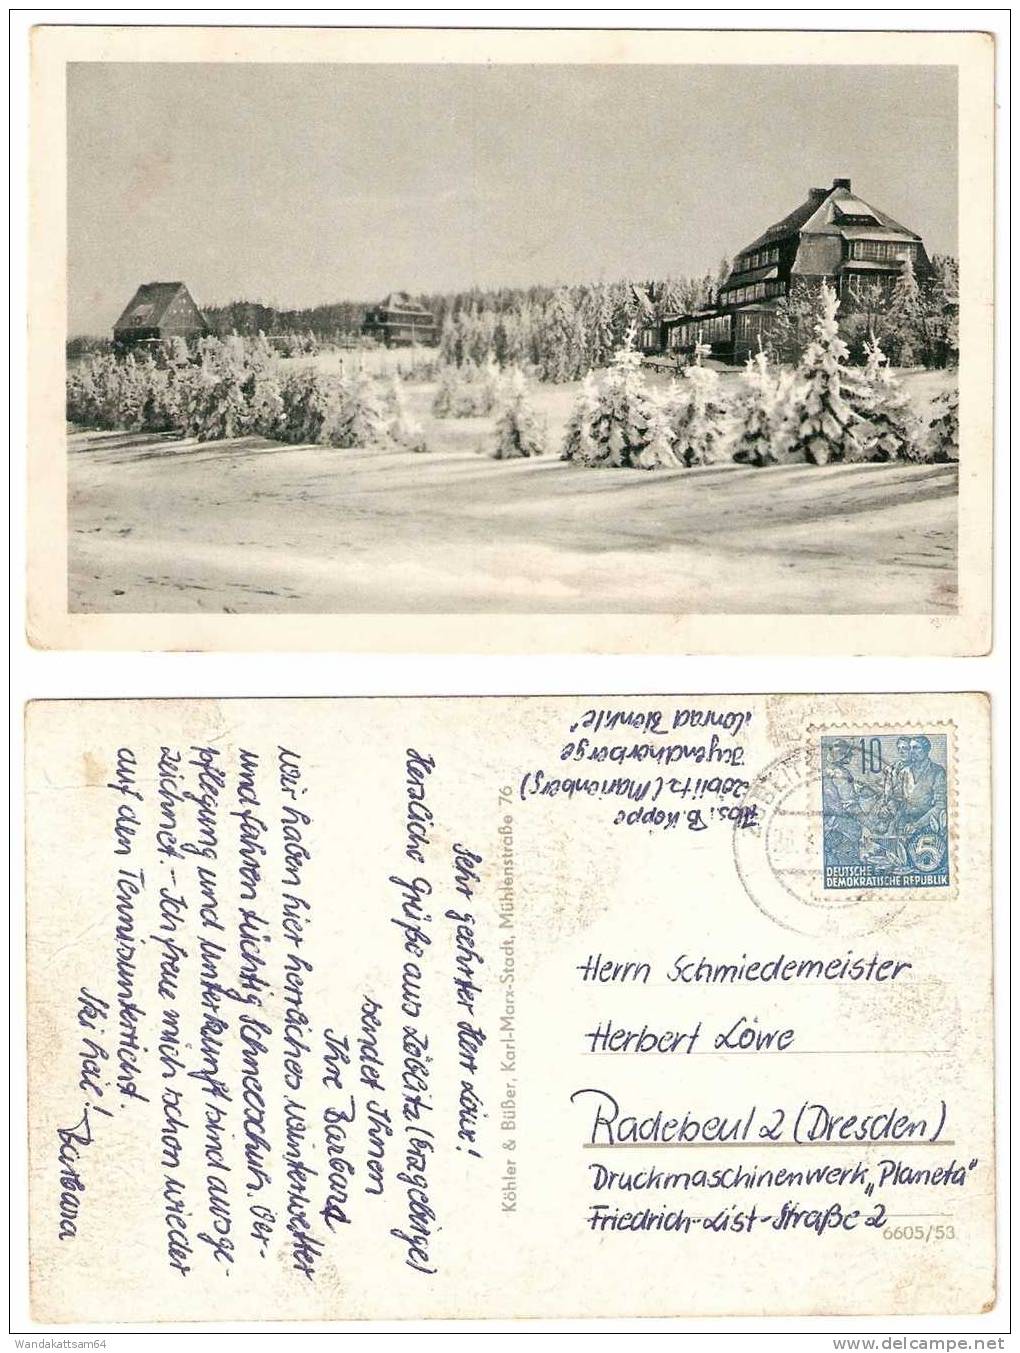 Abs.: B. Köppe
Zöblitz (Marienberg)
Jugendherberge
"Conrad Blenkle"
10
5
DEUTSCHE
DEMOKRATISCHE REPUBLIK
Sehr geehrter Herr Löwe!
Herzliche Grüße aus Zöblitz (Erzgebirge)
sendet Ihnen
Ihre Barbara
Wir haben hier herrliches Winterwetter
und fahren tüchtig Schneeschuh. Ver-
pflegung und Unterkunft sind ausge-
zeichnet. – Ich freue mich schon wieder
auf den Tennisunterricht.
Ski heil! Barbara
Köhler & Büßer, Karl-Marx-Stadt, Mühlenstraße 76
Herrn Schmiedemeister
Herbert Löwe
Radebeul 2 (Dresden)
Druckmaschinenwerk „Planeta"
Friedrich-List-Straße 2
6605/53
Wandakattsam64
www.delcampe.net